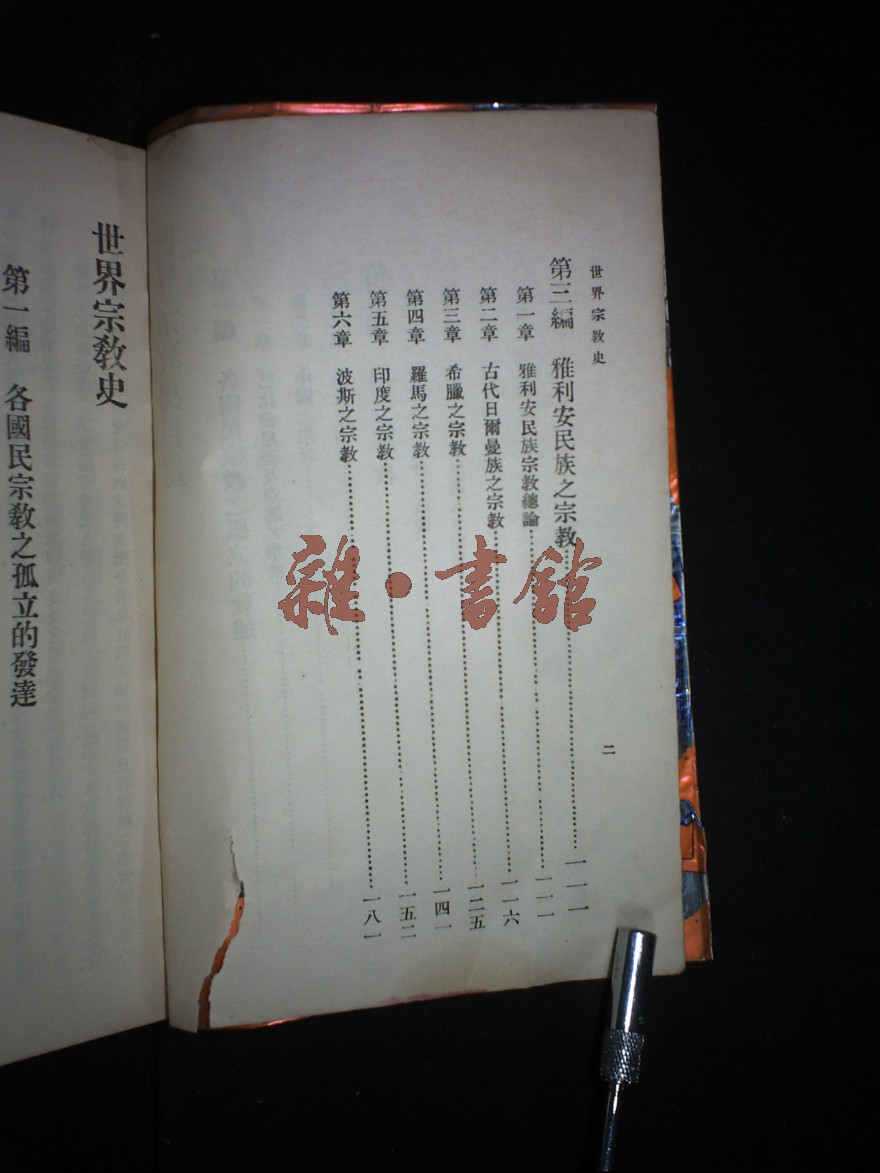 世界宗教史
二
第三編　雅利安民族之宗教………一一一
第一章　雅利安民族宗教總論………一一一
第二章　古代日爾曼族之宗教………一一六
第三章　希臘之宗教………一二五
第四章　羅馬之宗教………一四一
第五章　印度之宗教………一五二
第六章　波斯之宗教………一八一
世界宗教史
第一編　各國民宗教之孤立的發達
雜·書館